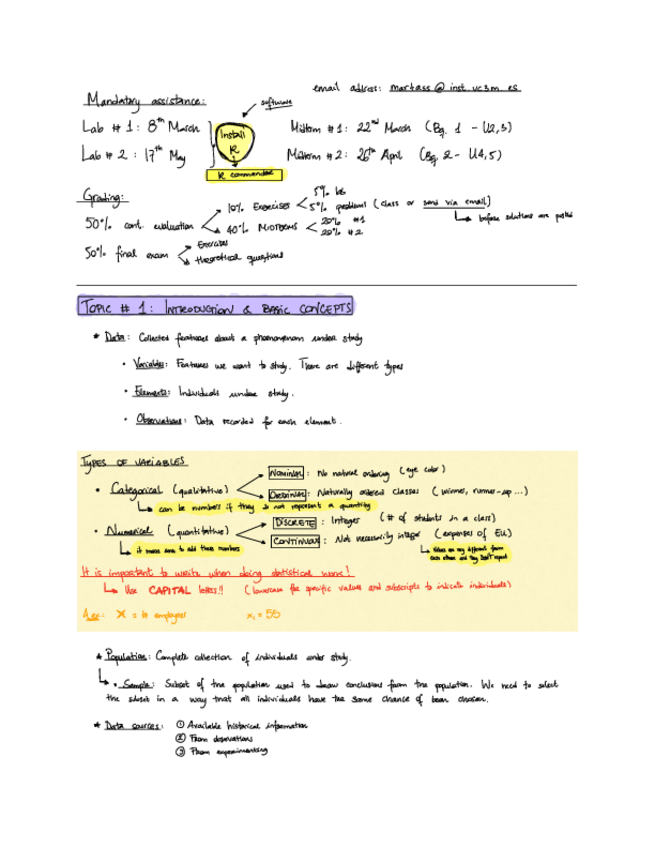 email address: martass@inst.uc3m.es
Mandatory assistance:
software
Lab # 1: 8th March
Install R
Midterm #1: 22nd March (Bq. 1 - U2,3)
Lab # 2: 17th May
R commander
Midterm #2: 26th April (Bq. 2 - U4,5)
Grading:
50% cont. evaluation
10% Exercises
5% lab
5% problems (class or send via email)
before solutions are posted
40% MIDTERMS
20% #1
20% #2
50% final exam
Exercises
theoretical questions
TOPIC # 1: INTRODUCTION & BASIC CONCEPTS
* Data: Collected features about a phoenomenon under study
• Variables: Features we want to study. There are different types
• Elements: Individuals under study.
• Observations: Data recorded for each element.
TYPES OF VARIABLES
• Categorical (qualitative)
NOMINAL: No natural ordering (eye color)
ORDINAL: Naturally ordered classes (winner, runner-up...)
can be numbers if they do not represent a quantity
• Numerical (quantitative)
DISCRETE: Integer (# of students in a class)
CONTINUOUS: Not necessarily integer (expenses of EU)
it makes sense to add these numbers
each other and they DON'T repeat
It is important to write when doing statistical work!
Use CAPITAL letters!! (lowercase for specific values and subscripts to indicate individuals)
ex: X = # employees
x₁ = 55
* Population: Complete collection of individuals under study.
• Sample: Subset of the population used to draw conclusions from the population. We need to select
the subset in a way that all individuals have the same chance of been chosen.
* Data sources: ① Available historical information
② From observations
③ From experimenting